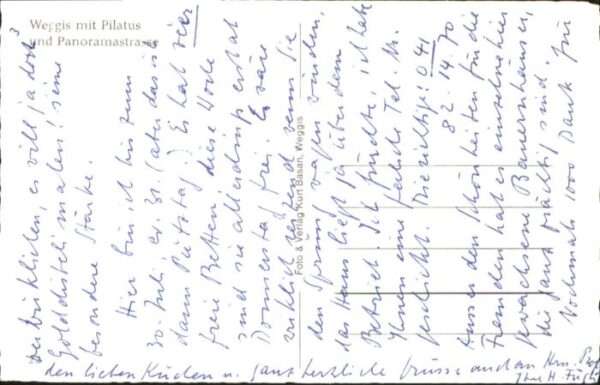 Weggis mit Pilatus
und Panoramastrasse
Foto & Verlag Kurt Basan, Weggis
verwirklichen, es will ja doch
Golddisteln malen! seine
besondere Stärke.
Hier bin ich bis zum
30. Juli, er. 31. (aber das ist
dann Putztag!) Es hat vier
freie Betten diese Woche
sind sie allerdings erst ab
Donnerstag frei. Es wäre
wirklich reizend wenn Sie
den Sprung wagen würden,
das Haus liegt ja über dem
Betrieb. Ich fürchte, ich habe
Ihnen eine falsche Tel. Nr.
geschickt. Die richtige: 041
82 14 70
Ausser den Schönheiten für die
Fremden hat es einzelne hier
gewachsene Bauernhäuser,
die ganz prächtig sind.
Nochmals 1000 Dank für
den lieben Kuchen u. ganz herzliche Grüsse auch an Hrn.
Ihre H.